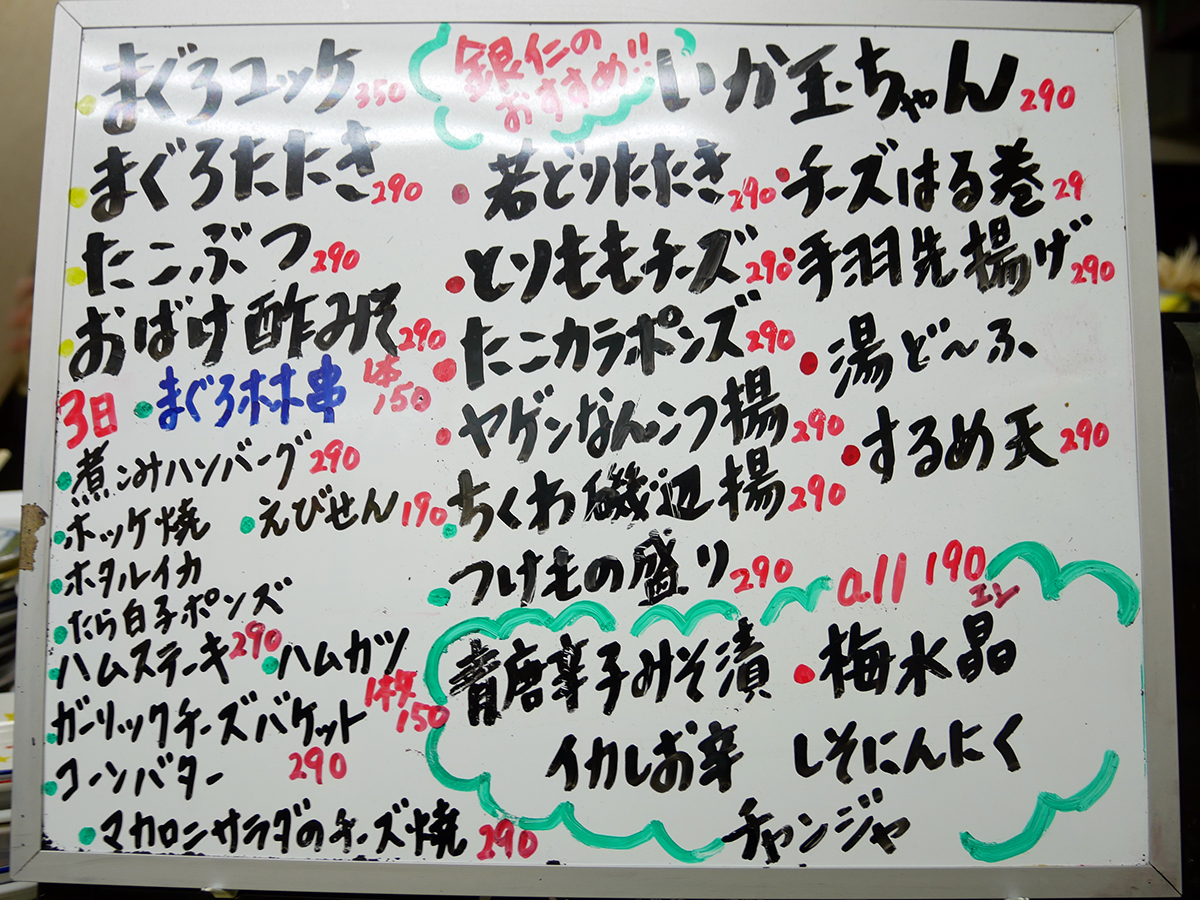 まぐろユッケ 350
まぐろたたき 290
たこぶつ 290
おばけ酢みそ 290
3日
まぐろホホ串 1本150
煮こみハンバーグ 290
ホッケ焼
えびせん 190
ホタルイカ
たら白子ポンズ
ハムステーキ 290
ハムカツ 1本150
ガーリックチーズバケット
コーンバター 290
マカロニサラダのチーズ焼 290
銀仁の
おすすめ!!
いか玉ちゃん 290
若どりたたき 290
チーズはる巻 29
とりももチーズ 290
手羽先揚げ 290
たこカラポンズ 290
湯ど〜ふ
ヤゲンなんこつ揚 290
するめ天 290
ちくわ磯辺揚 290
つけもの盛り 290
all 190エン
青唐辛子みそ漬
梅水晶
イカしお辛
しそにんにく
チャンジャ